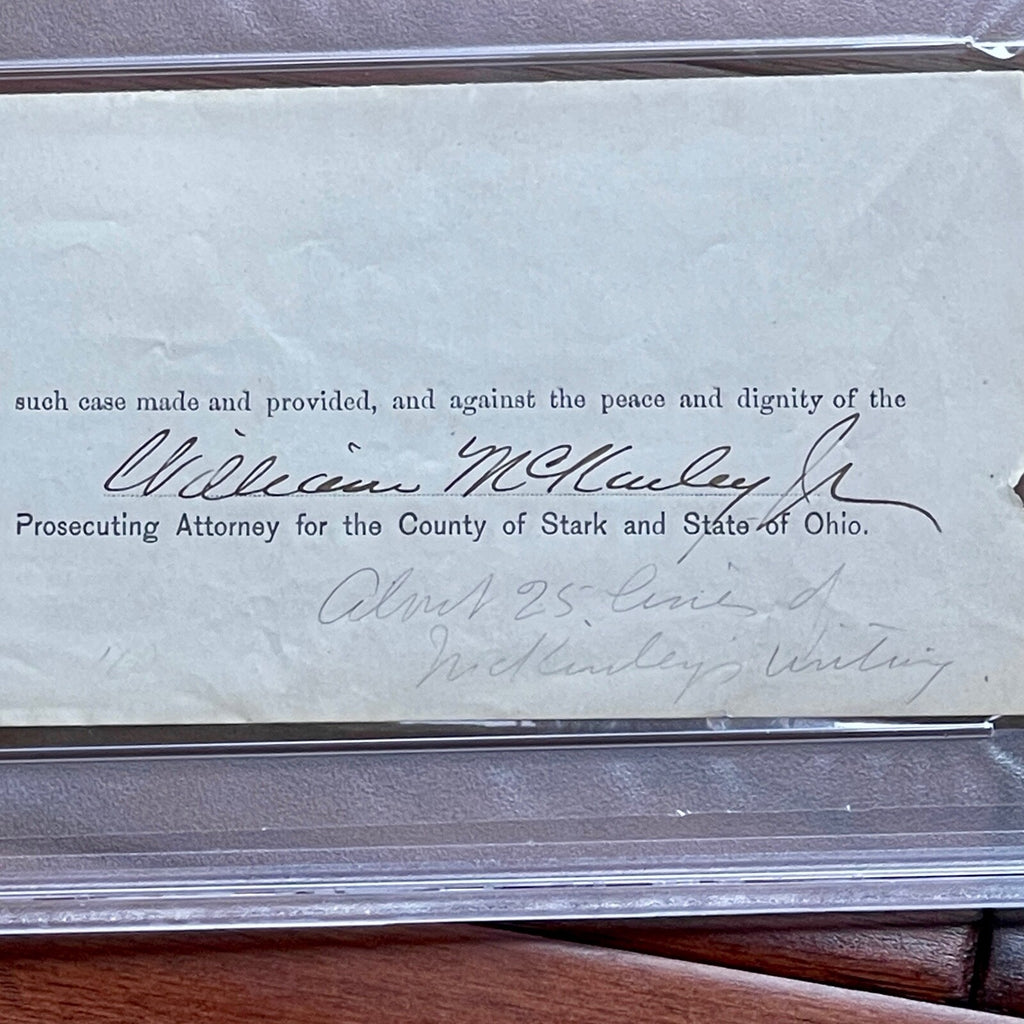 such case made and provided, and against the peace and dignity of the
William McKinley Jr
Prosecuting Attorney for the County of Stark and State of Ohio.
About 25 lines of
McKinley's writing